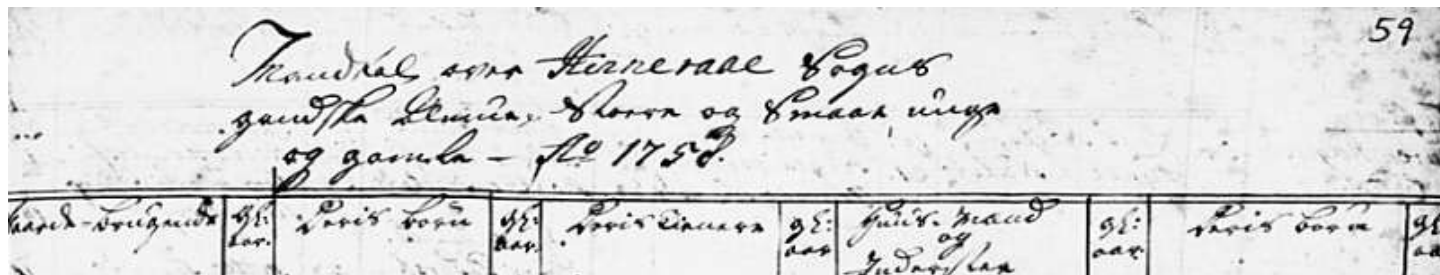 59
Mandtal over Hirneraae Sogns
gandske Almue, Stoere og Smaae, unge
og gamle – Ao 1758.
gaards-brugende gl: aar. Deris børn gl: aar. Deris tienere gl: aar Huus-Mænd og Inderster gl: aar Deris børn gl: aa